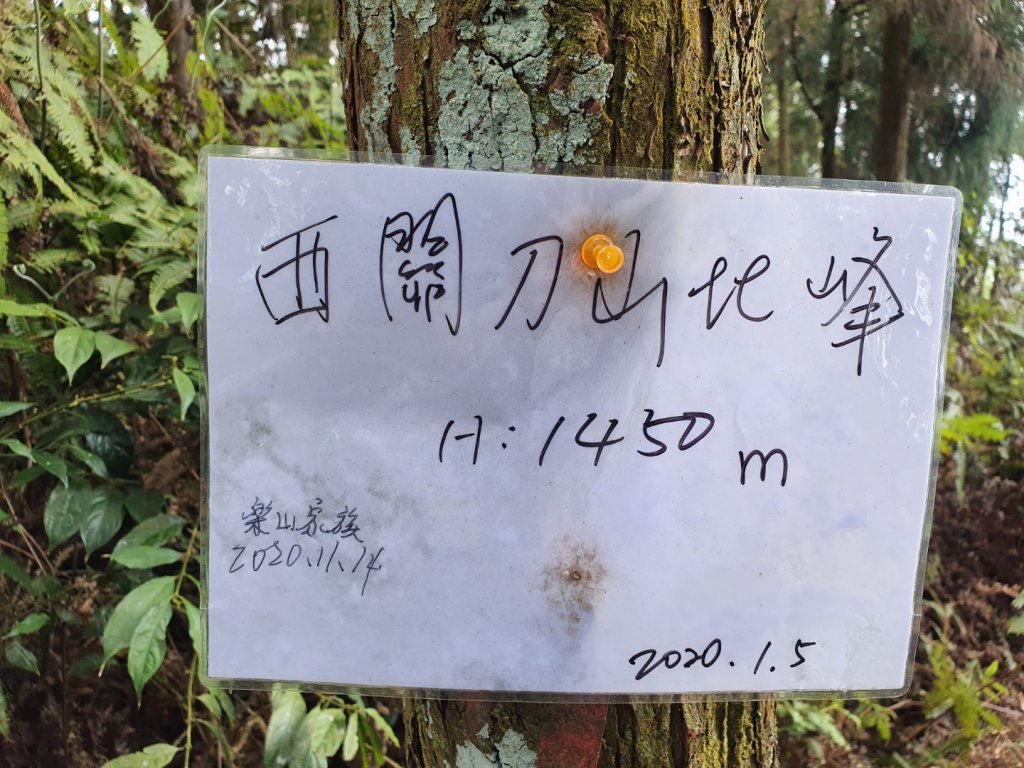 西關刀山北峰
H:1450m
樂山家族
2020.11.14
2020.1.5